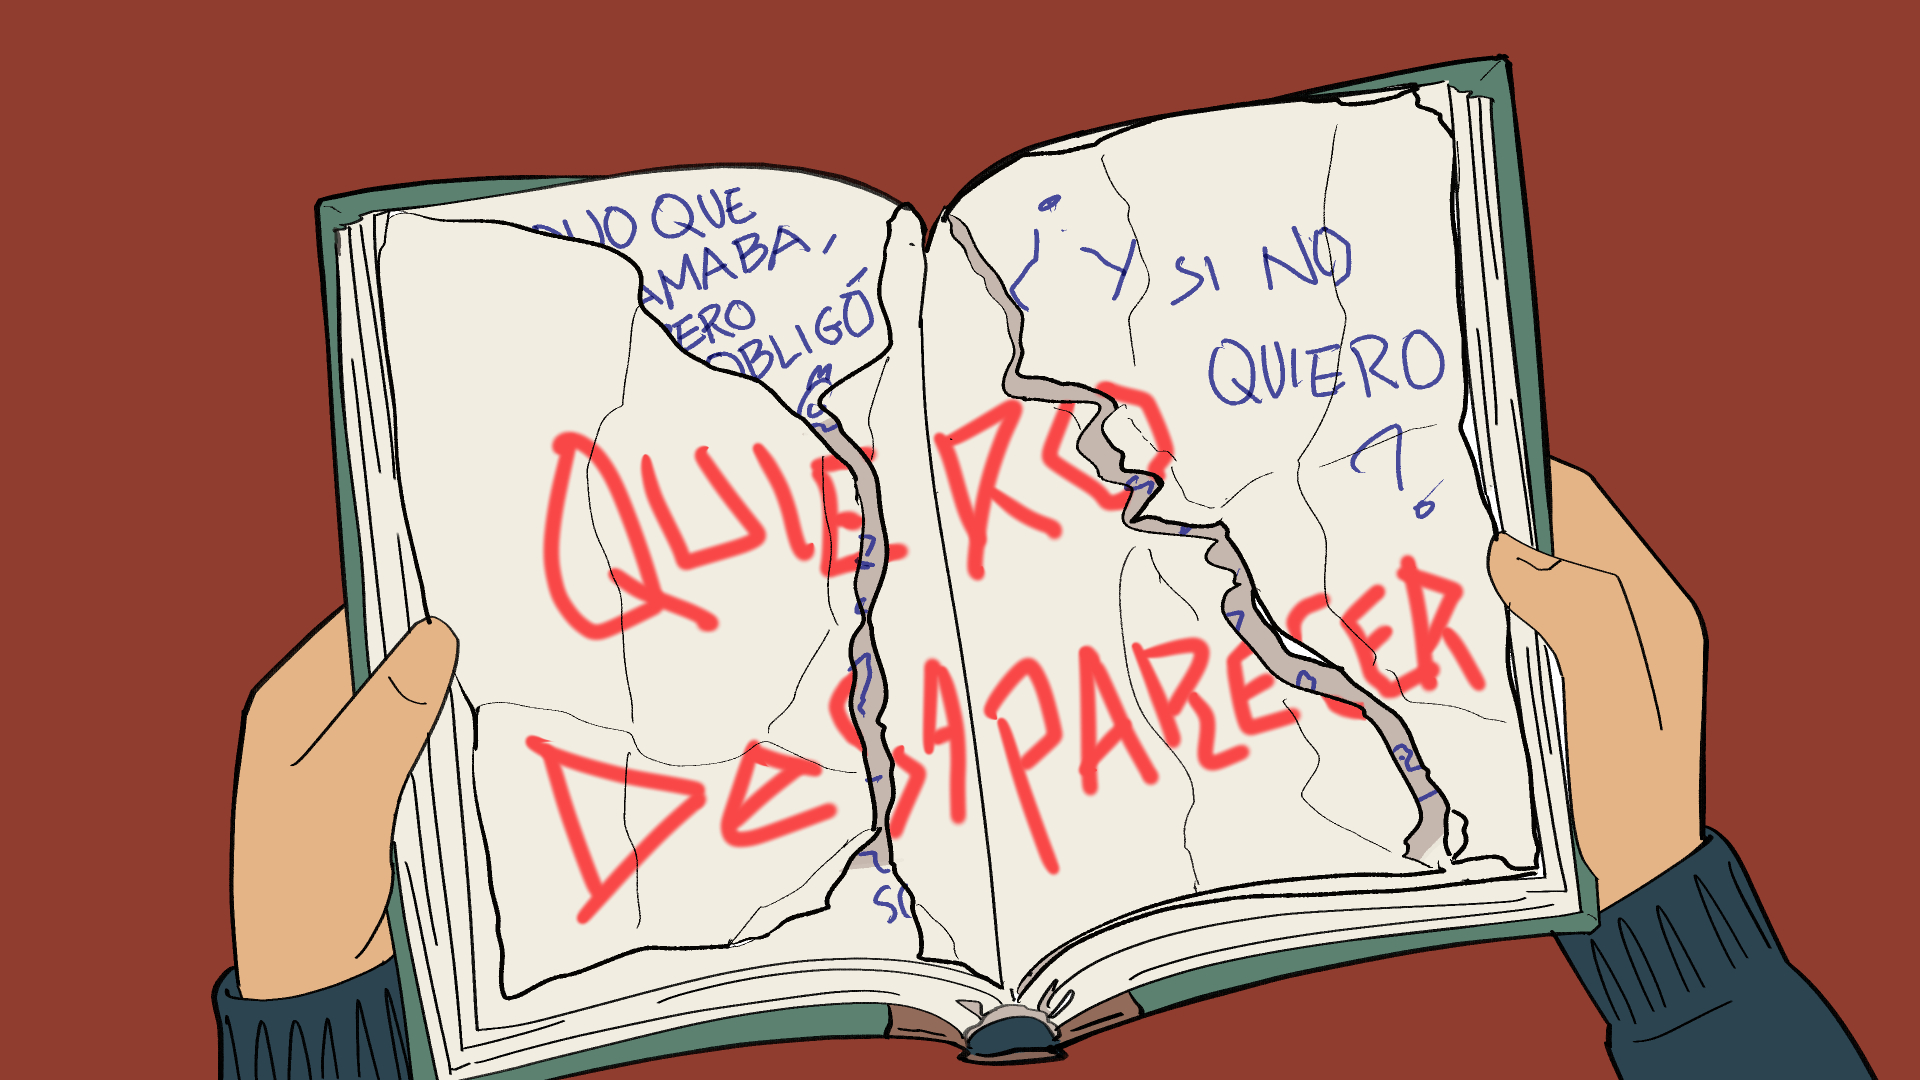 QUE
AMABA,
OBLIGÓ
¿Y SI NO
QUIERO
?
QUIERO
DESAPARECER